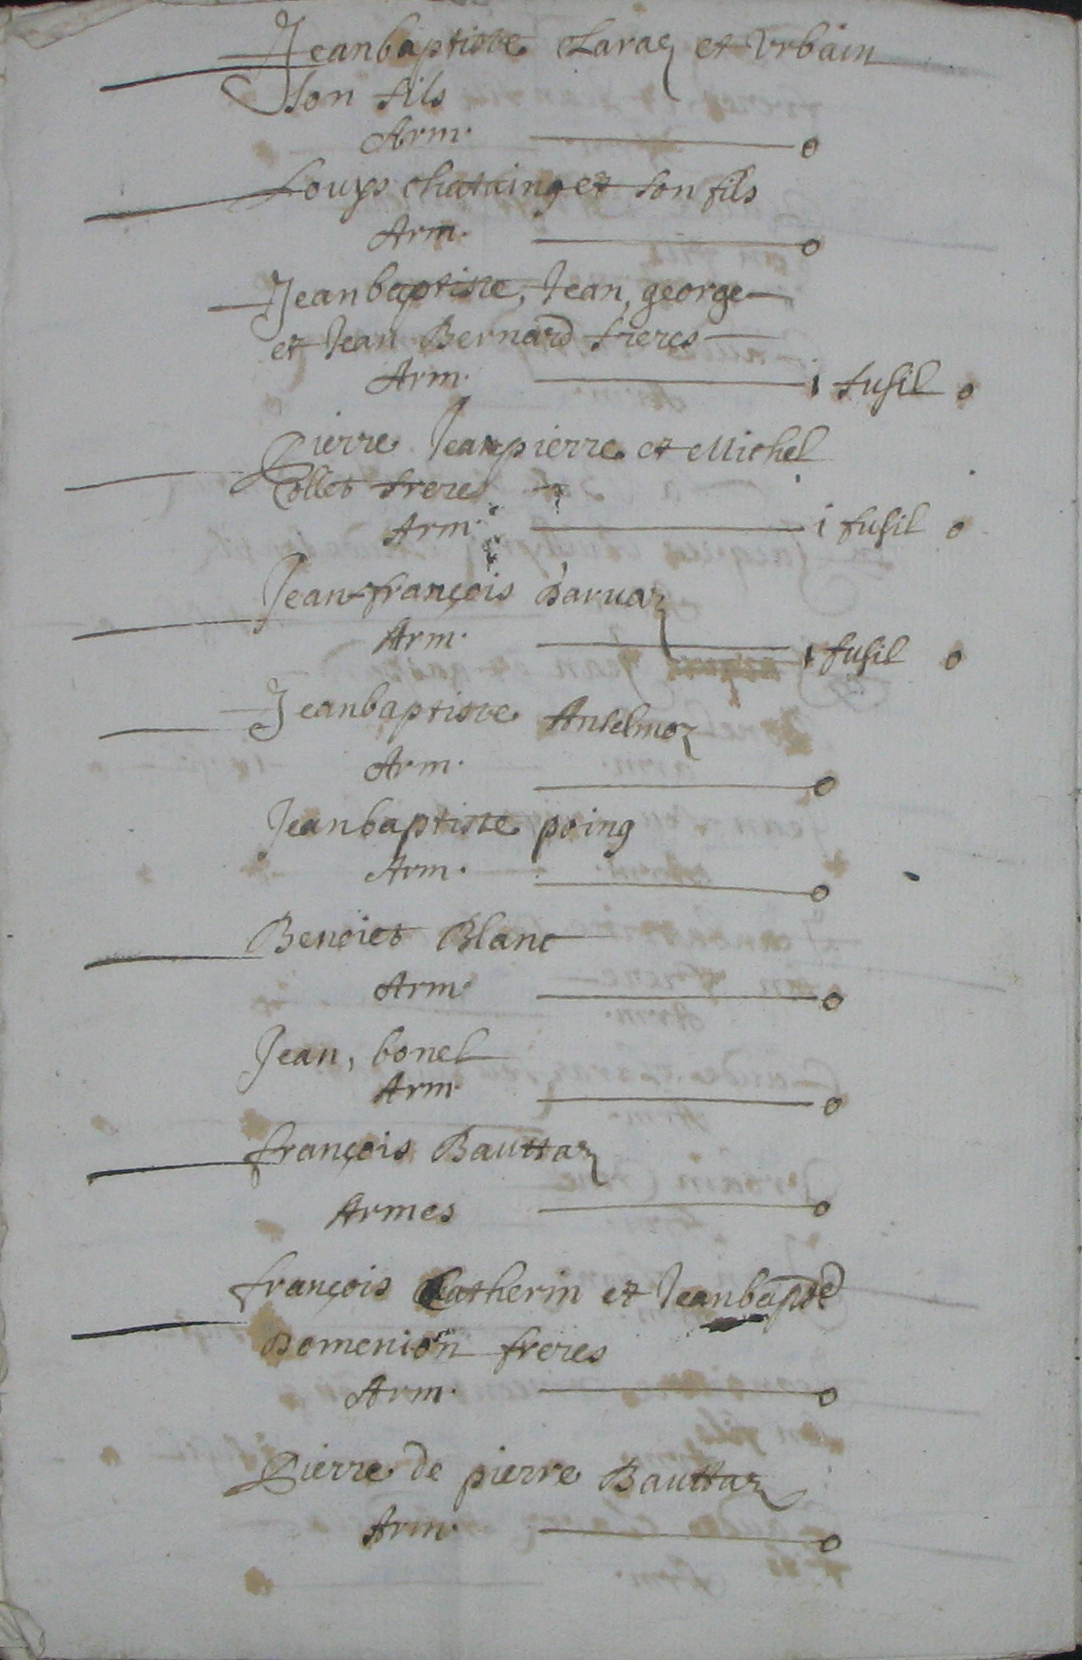 Jeanbaptiste Claraz et Vrbain
son fils
Arm. o
Louys chataing et son fils
Arm. o
Jeanbaptiste, Jean, george
et Jean Bernard freres
Arm. 1 fusil o
Pierre Jeanpierre et Michel
Collet frere
Arm. 1 fusil o
Jean françois Daruaz
Arm. 1 fusil o
Jeanbaptiste Anselmoz
Arm. o
Jeanbaptiste poing
Arm. o
Benoict Blanc
Arm. o
Jean, bonel
Arm. o
françois Bauttaz
Armes o
françois Catherin et Jeanbapte
Domenion freres
Arm. o
Pierre de pierre Bauttaz
Arm. o